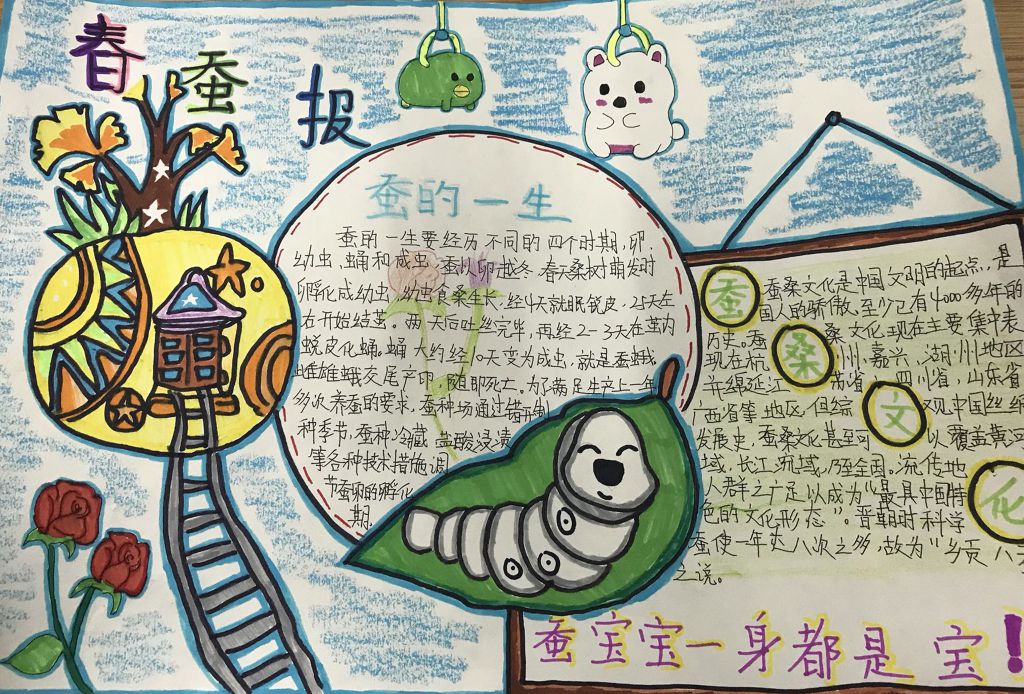 春蚕报
蚕的一生
蚕的一生要经历不同的四个时期,卵,
幼虫,蛹和成虫,蚕以卵越冬.春天桑树萌发时
孵化成幼虫 幼虫食桑生长.经4天就眠蜕皮,25天左
右开始结茧。两天后吐丝完毕,再经2-3天在茧内
蜕皮化蛹.蛹大约经10天变为成虫,就是蚕蛾
雌雄蛾交尾产卵,随即死亡。为了满足生产上一年
多次养蚕的要求,蚕种场通过错开制
种季节,蚕种冷藏 盐酸浸渍
等各种技术措施调
节蚕卵的孵化
期.
蚕桑文化
蚕桑文化是中国文明的起点,是
国人的骄傲.至少已有4000多年的
历史。蚕桑文化现在主要集中表
现在杭州,嘉兴,湖州地区
并绵延江 省,四川省,山东省
广西省等地区,但综观中国丝绸
发展史,蚕桑文化甚至可以覆盖黄河
域,长江流域,乃至全国。流传地
人群之广足以成为“最具中国特
色的文化形态”。晋朝时科学
蚕使一年 八次之多,故为“乡贡八
之说。
蚕宝宝一身都是宝!